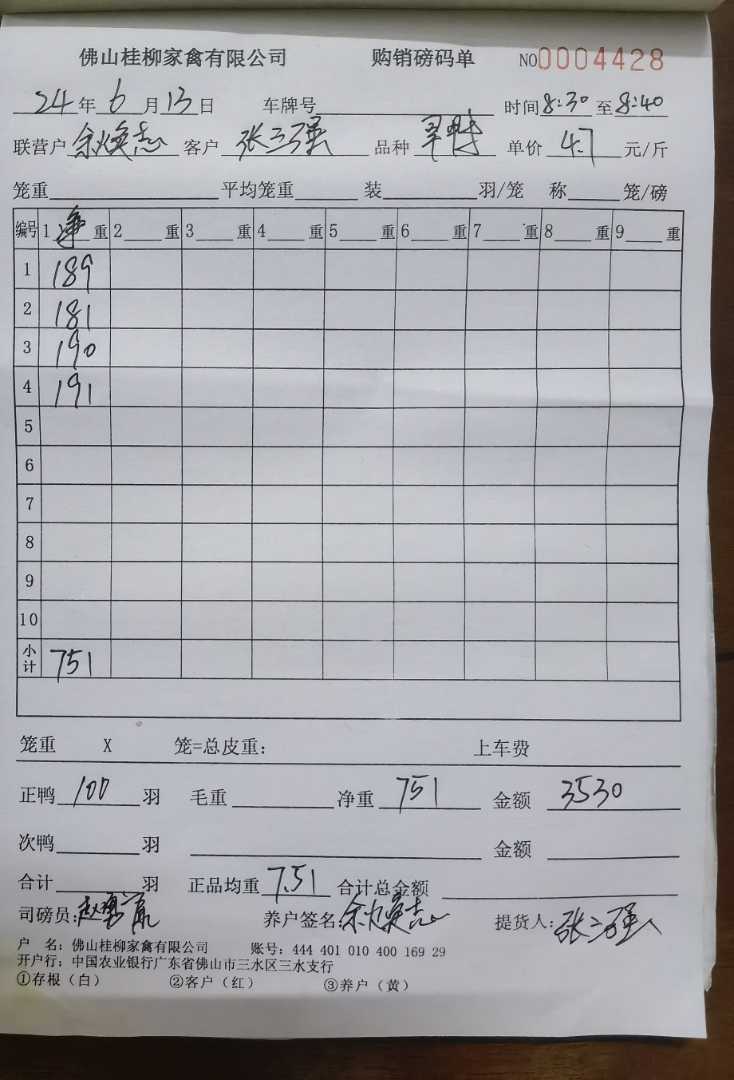 佛山桂柳家禽有限公司 购销磅码单 NO0004428
24年6月13日 车牌号 时间8:30至8:40
联营户 余焕志 客户 张三强 品种 单价 4.7 元/斤
笼重 平均笼重 装 羽/笼 称 笼/磅
编号 1 净 重 2 重 3 重 4 重 5 重 6 重 7 重 8 重 9 重
1 189
2 181
3 190
4 191
5
6
7
8
9
10
小计 751
笼重 X 笼=总皮重: 上车费
正鸭 100 羽 毛重 净重 751 金额 3530
次鸭 羽 金额
合计 羽 正品均重 7.51 合计总金额
司磅员: 养户签名:余焕志 提货人:张三强
户 名: 佛山桂柳家禽有限公司 账号: 444 401 010 400 169 29
开户行: 中国农业银行广东省佛山市三水区三水支行
①存根（白） ②客户（红） ③养户（黄）